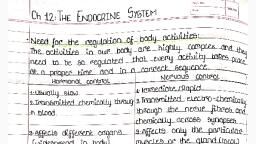 Ch 12: THE ENDOCRINE SYSTEM
Need for the regulation of body activities:
The activities in our body are highly complex and they
need to be so regulated that every activity takes place
at a proper time and in a correct sequence.
Hormonal control Nervous control
1. Usually slow 1. Immediate/Rapid
2. Transmitted chemically through 2. Transmitted electro-chemically
blood through the nerve fibres and
chemically across synapses
3. Affects different organs 3. Affects only the particular
(widespread in body) muscles or the gland